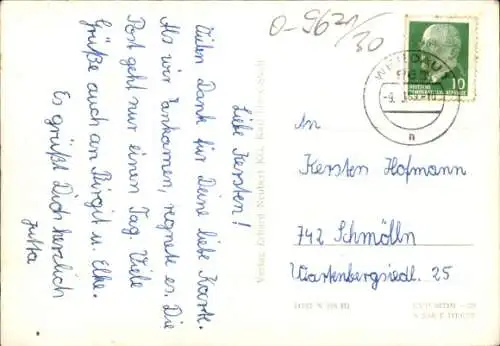 Liebe Kersten!
Vielen Dank für Deine liebe Karte.
Als wir ankamen, regnete es. Die
Post geht nur einen Tag. Viele
Grüße auch an Birgit u. Elke.
Es grüßt Dich herzlich
Jutta
0-9621/30
10
DEUTSCHE
DEMOKRATISCHE REPUBLIK
n
An
Kersten Hofmann
742 Schmölln
Wartenbergsiedl. 25
Verlag Erhard Neubert KG, Karl-Marx-Stadt